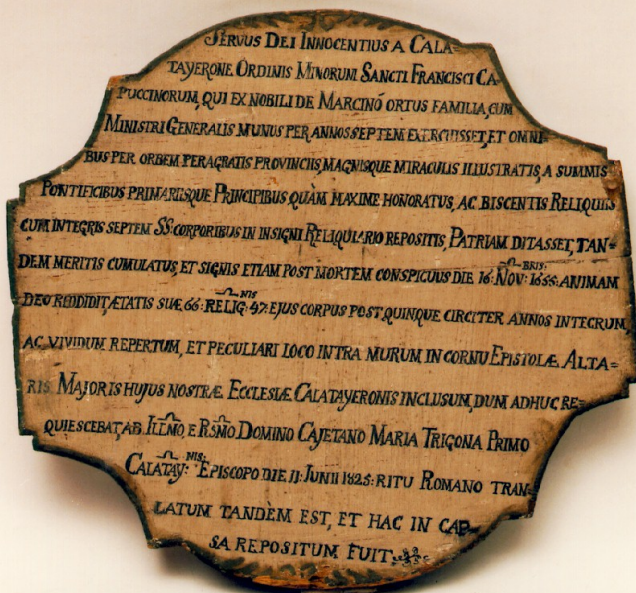 SERVUS DEI INNOCENTIUS A CALA=
TAYERONE ORDINIS MINORUM SANCTI FRANCISCI CA-
PUCCINORUM, QUI EX NOBILI DE MARCINÒ ORTUS FAMILIA, CUM
MINISTRI GENERALIS MUNUS PER ANNOS SEPTEM EXERCUISSET, ET OMNI=
BUS PER ORBEM PERAGRATIS PROVINCIIS, MAGNISQUE MIRACULIS ILLUSTRATIS, A SUMMIS
PONTIFICIBUS PRIMARIISQUE PRINCIPIBUS QUÀM MAXIME HONORATUS, AC BISCENTIS RELIQUIIS
CUM INTEGRIS SEPTEM SS: CORPORIBUS IN INSIGNI RELIQUIARIO REPOSITIS, PATRIAM DITASSET, TAN=
DEM MERITIS CUMULATUS, ET SIGNIS ETIAM POST MORTEM CONSPICUUS DIE 16: NOV:BRIS: 1655: ANIMAM
DEO REDDIDIT, ÆTATIS SUÆ 66: RELIG:NIS 47: EJUS CORPUS POST QUINQUE CIRCITER ANNOS INTEGRUM
AC VIVIDUM REPERTUM, ET PECULIARI LOCO INTRA MURUM IN CORNU EPISTOLÆ ALTA=
RIS MAJORIS HUJUS NOSTRÆ ECCLESIÆ CALATAYERONIS INCLUSUM, DUM ADHUC RE=
QUIESCEBAT, AB ILLMO, E RSMO DOMINO CAJETANO MARIA TRIGONA PRIMO
CALATAY:NIS: EPISCOPO DIE 11: JUNII 1825: RITU ROMANO TRAN=
LATUM TANDÈM EST, ET HAC IN CAP-
SA REPOSITUM FUIT.